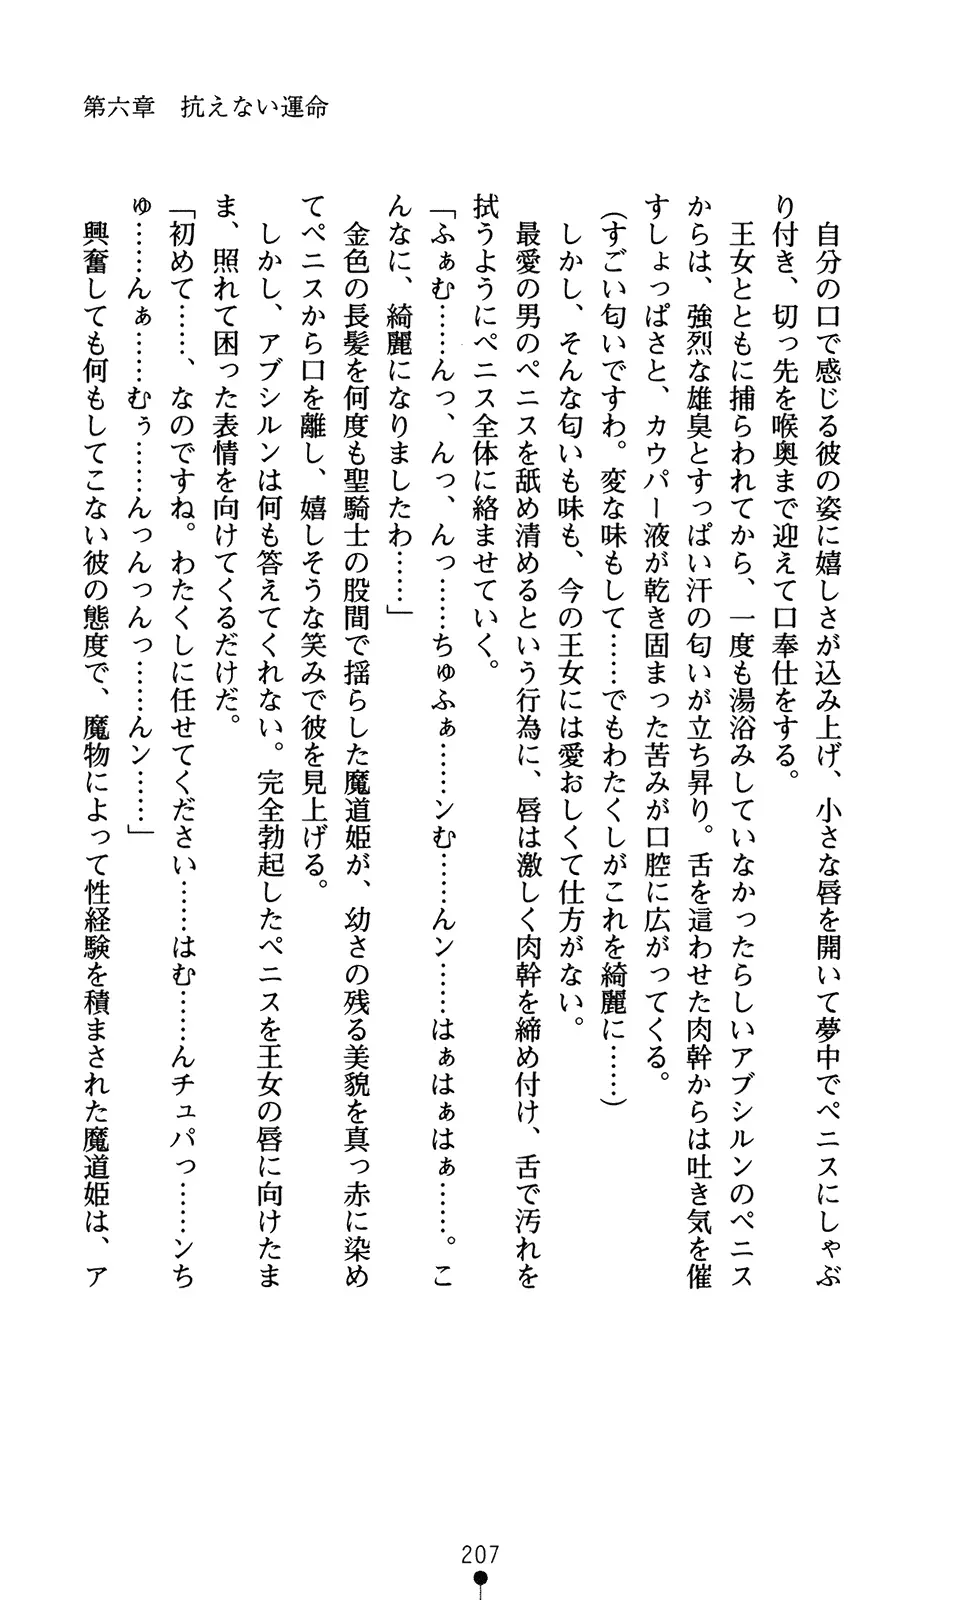 第六章　抗えない運命
自分の口で感じる彼の姿に嬉しさが込み上げ、小さな唇を開いて夢中でペニスにしゃぶ
り付き、切っ先を喉奥まで迎えて口奉仕をする。
王女とともに捕らわれてから、一度も湯浴みしていなかったらしいアブシルンのペニス
からは、強烈な雄臭とすっぱい汗の匂いが立ち昇り。舌を這わせた肉幹からは吐き気を催
すしょっぱさと、カウパー液が乾き固まった苦みが口腔に広がってくる。
(すごい匂いですわ。変な味もして……でもわたくしがこれを綺麗に……)
しかし、そんな匂いも味も、今の王女には愛おしくて仕方がない。
最愛の男のペニスを舐め清めるという行為に、唇は激しく肉幹を締め付け、舌で汚れを
拭うようにペニス全体に絡ませていく。
「ふぁむ……んっ、んっ、んっ……ちゅふぁ……ンむ……んン……はぁはぁはぁ……。こ
んなに、綺麗になりましたわ……」
金色の長髪を何度も聖騎士の股間で揺らした魔道姫が、幼さの残る美貌を真っ赤に染め
てペニスから口を離し、嬉しそうな笑みで彼を見上げる。
しかし、アブシルンは何も答えてくれない。完全勃起したペニスを王女の唇に向けたま
ま、照れて困った表情を向けてくるだけだ。
「初めて……、なのですね。わたくしに任せてください……はむ……んチュパっ……ンち
ゅ……んぁ……むぅ……んっんっんっ……んン……」
興奮しても何もしてこない彼の態度で、魔物によって性経験を積まされた魔道姫は、ア
207